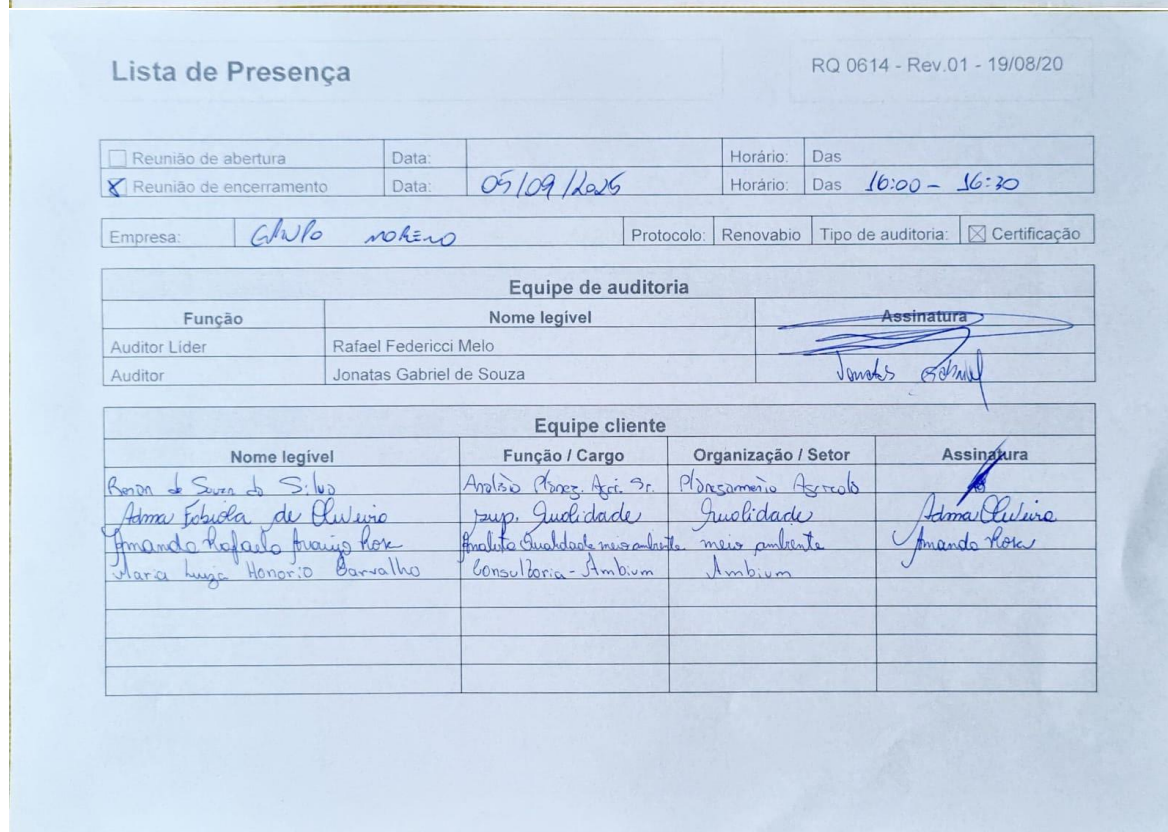 Lista de Presença
RQ 0614 - Rev.01 - 19/08/20
Reunião de abertura Data: Horário: Das
Reunião de encerramento Data: 05/09/2025 Horário: Das 16:00 - 16:30
Empresa: GRUPO MORENO Protocolo: Renovabio Tipo de auditoria: Certificação
Equipe de auditoria
Função Nome legível Assinatura
Auditor Líder Rafael Federicci Melo
Auditor Jonatas Gabriel de Souza Jonatas Gabriel
Equipe cliente
Nome legível Função / Cargo Organização / Setor Assinatura
de Souza da Silva Planej. Agri. Sr. Planejamento Agrícola
Adma Fabiola de Oliveira sup. Qualidade Qualidade Adma Oliveira
Amanda Rafaela Araujo Rosa Analista Qualidade meio ambiente meio ambiente Amanda Rosa
Maria Luiza Honorio Carvalho Consultoria - Ambium Ambium